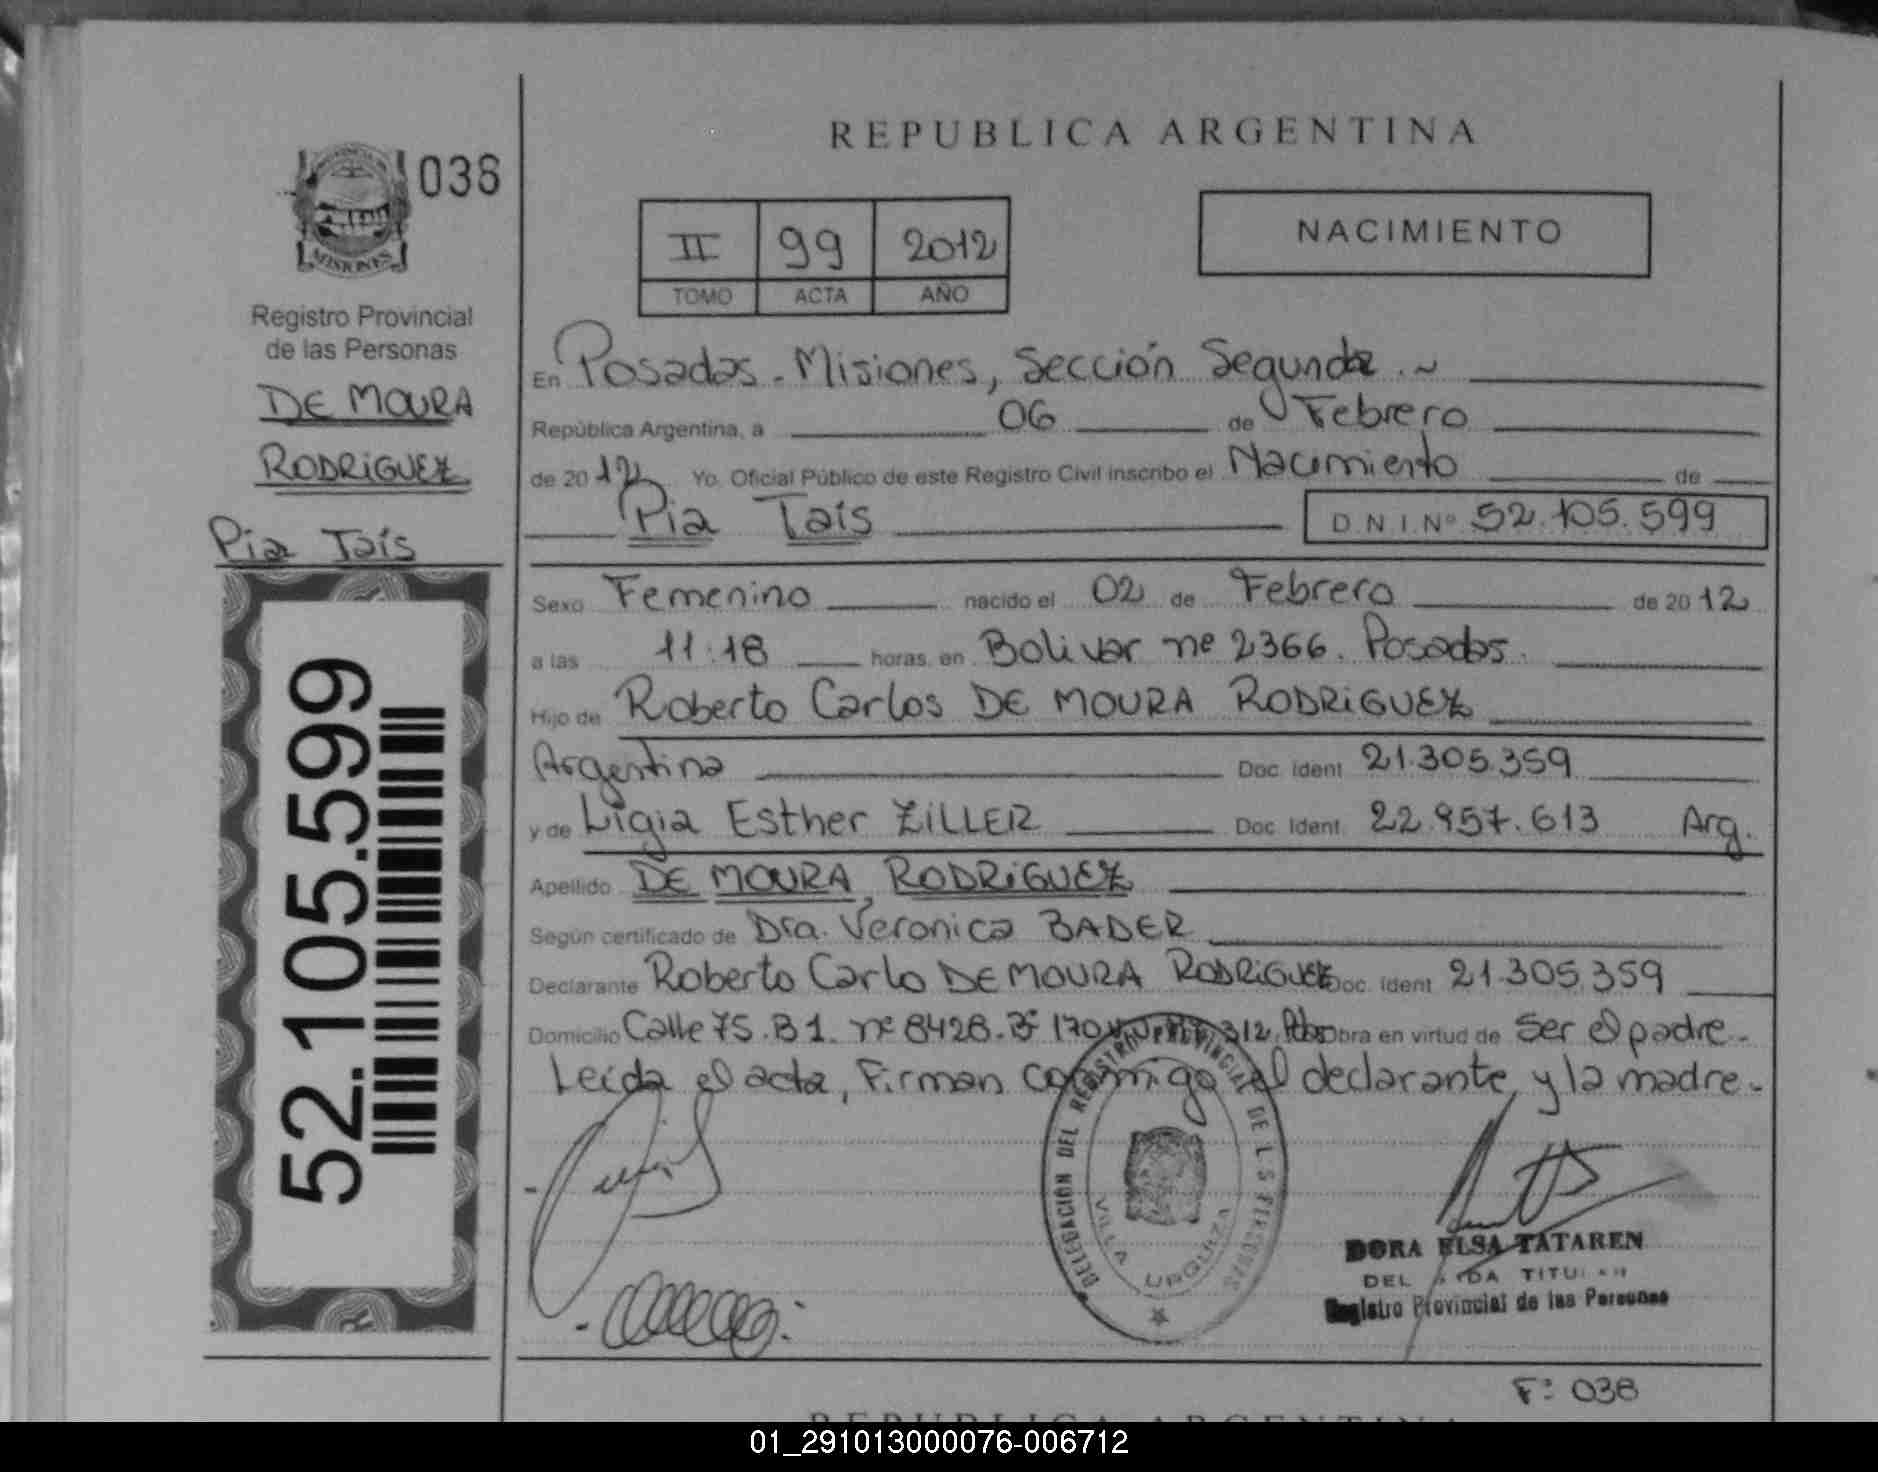 REPUBLICA ARGENTINA
PROVINCIA DE
MISIONES
038
Registro Provincial
de las Personas
DE MOURA
RODRIGUEZ
Pia Taís
52.105.599
II 99 2012
TOMO ACTA AÑO
NACIMIENTO
En Posadas - Misiones, Sección Segunda .~
República Argentina, a 06 de Febrero
de 2012 Yo. Oficial Público de este Registro Civil inscribo el Nacimiento de
Pia Taís D.N.I.Nº 52.105.599
Sexo Femenino nacido el 02 de Febrero de 2012
a las 11:18 horas, en Bolivar nº 2366. Posadas.
Hijo de Roberto Carlos DE MOURA RODRIGUEZ
Argentina Doc. Ident. 21.305.359
y de Ligia Esther ZILLER Doc. Ident. 22.957.613 Arg.
Apellido DE MOURA RODRIGUEZ
Según certificado de Dra. Veronica BADER
Declarante Roberto Carlo DE MOURA RODRIGUEZ Doc. Ident. 21.305.359
Domicilio Calle 75. B 1. nº 8428. Bº 170 312. Pdas Obra en virtud de Ser el padre.-
Leída el acta, Firman conmigo el declarante y la madre.-
DELEGACIÓN DEL REGISTRO PROVINCIAL DE L S PERSONAS
VILLA URQUIZA
DORA ELSA TATAREN
DEL DA TITULAR
Registro Provincial de las Personas
Fº 038
REPUBLICA ARGENTINA
01_291013000076-006712